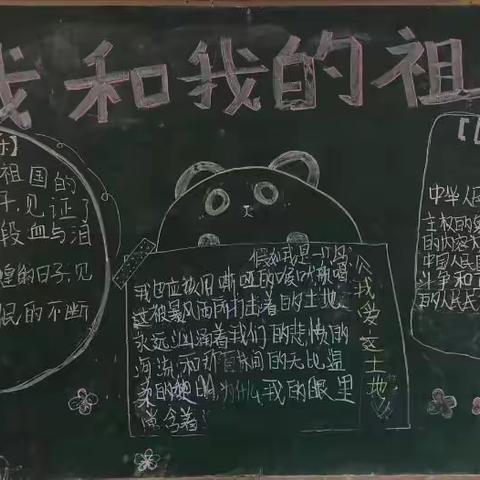 我和我的祖
乐】
祖国的
子,见证了
段血与泪
煌的日子,见
民的不断
假如我是一只鸟,
我也应该用嘶哑的喉咙歌唱
这被暴风雨所打击着的土地
永远汹涌着我们的悲愤的
河流,和那
林间的无比温
柔的
为什么我的眼里
常含着
《我爱这土地》
中华人民
主权的象
的内容
中国人民
斗争和
的人民民